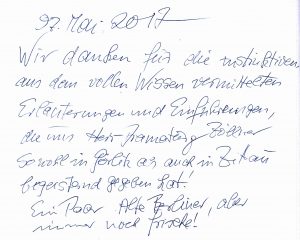 Mai 2017
Wir danken für die instruktiven
aus dem vollen Wissen vermittelten
Erläuterungen und Einführungen,
die uns Herr Zöllner
sowohl in Görlitz als auch in Zittau
gegeben hat!
Ein Paar Alte Berliner, aber
immer noch Frische!